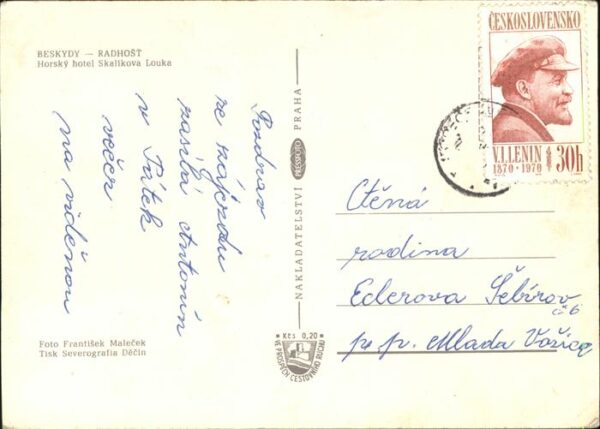 BESKYDY — RADHOŠŤ
Horský hotel Skalíkova Louka
Pozdrav
ze zájezdu
zasílá Antonín
v Pátek
večer
na viděnou
Foto František Maleček
Tisk Severografia Děčín
NAKLADATELSTVÍ PRESSFOTO PRAHA
Kčs 0,20
VE PROSPĚCH CESTOVNÍHO RUCHU
ČESKOSLOVENSKO
V.I.LENIN
1870-1970
30h
Ctěná
rodina
Ederova Šebířov
č 6
p. p. Mladá Vožice